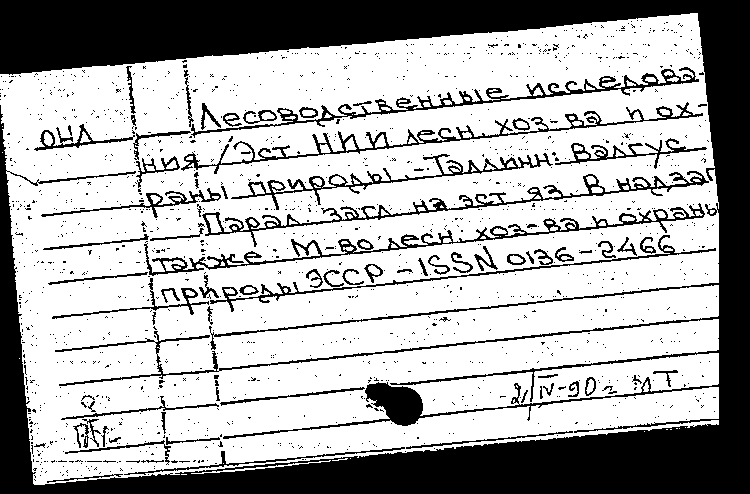 ОНЛ
Лесоводственные исследова-
ния / Эст. НИИ лесн. хоз-ва и ох-
раны природы. - Таллинн: Валгус
Парал. загл. на эст. яз. В надзаг.
также: М-во лесн. хоз-ва и охраны
природы ЭССР. - ISSN 0136-2466
2/IV-90г МТ